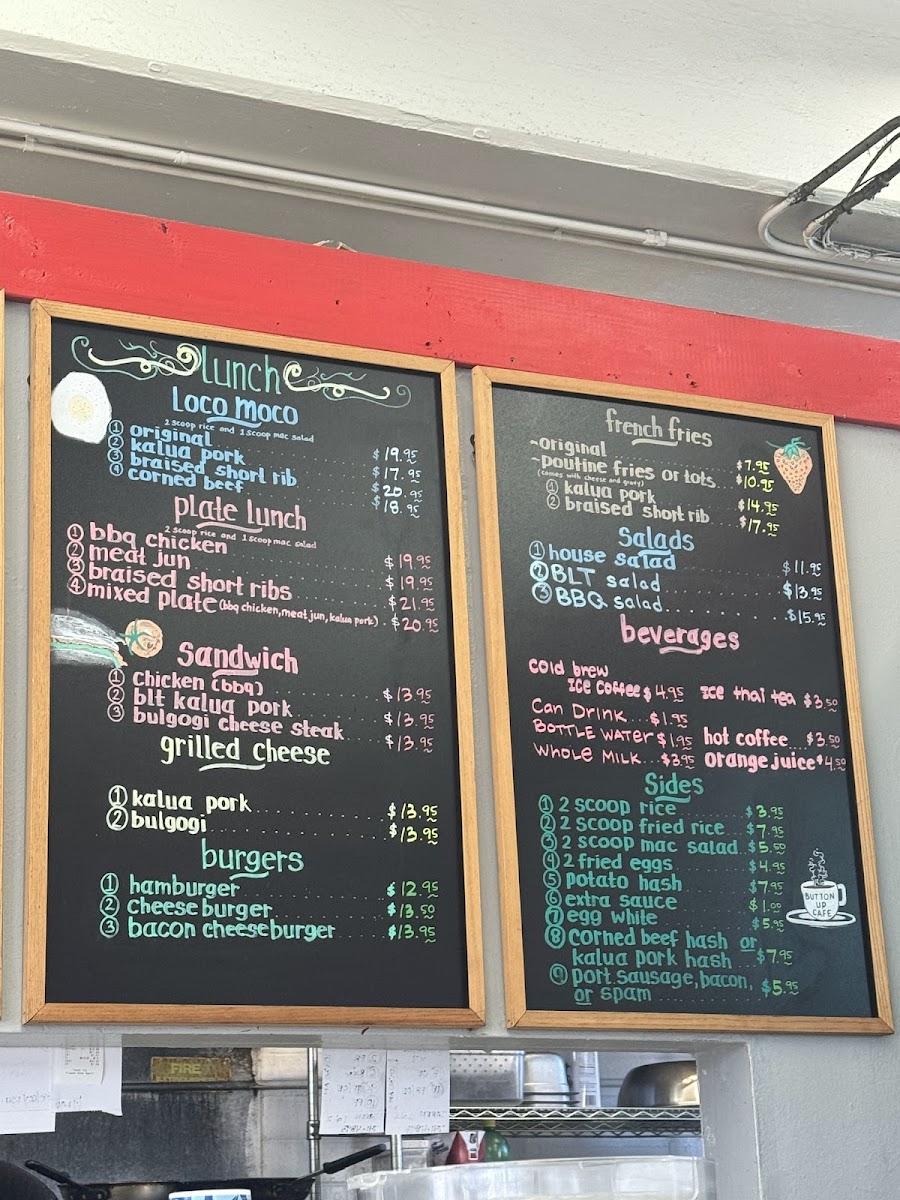 Lunch
Loco Moco
2 scoop rice and 1 scoop mac salad
① original $19.95
② kalua pork $17.95
③ braised short rib $20.95
④ corned beef $18.95
plate lunch
2 scoop rice and 1 scoop mac salad
① bbq chicken $19.95
② meat jun $19.95
③ braised short ribs $21.95
④ mixed plate (bbq chicken, meat jun, kalua pork) . $20.95
Sandwich
① Chicken (bbq) $13.95
② blt kalua pork $13.95
③ bulgogi cheese steak $13.95
grilled cheese
① kalua pork $13.95
② bulgogi $13.95
burgers
① hamburger $12.95
② cheeseburger $13.50
③ bacon cheeseburger $13.95
french fries
~original $7.95
~poutine fries or tots $10.95
(comes with cheese and gravy)
① kalua pork $14.95
② braised short rib $17.95
Salads
① house salad $11.95
② BLT salad $13.95
③ BBQ salad $15.95
beverages
Cold brew
Ice Coffee $4.95 Ice thai tea $3.50
Can Drink... $1.95
Bottle Water $1.95 hot coffee... $3.50
Whole Milk... $3.95 orange juice $4.50
Sides
① 2 scoop rice $3.95
② 2 scoop fried rice $7.95
③ 2 scoop mac salad $5.50
④ 2 fried eggs $4.95
⑤ potato hash $7.95
⑥ extra sauce $1.00
⑦ egg white $5.95
⑧ corned beef hash or
kalua pork hash $7.95
⑨ port. sausage, bacon,
or spam $5.95
BUTTON
UP
CAFE
FIRE